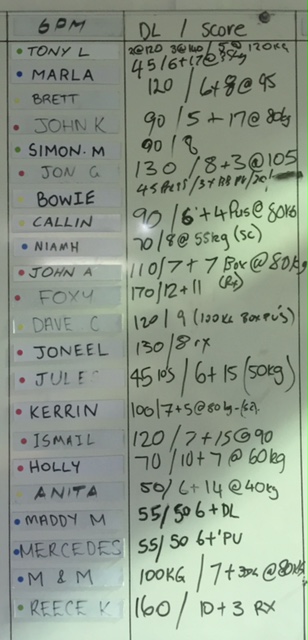 6PM DL / Score
TONY L 2@120 3@140 / 120kg
MARLA 45/6+17@35kg
BRETT 120 / 6+8@95
JOHN K 90 / 5 + 17@80kg
SIMON. M 90 / 8
JON G 130 / 8+3@105
BOWIE 45
CALLIN 90 / 6+4 Pus@80KG
NIAMH 70/8@55kg (SC)
JOHN A 110/7+7 Box@80kg
FOXY 170/12+11 (Rx)
DAVE C 120/9 (100KG BOX PU'S)
JONEEL 130/8 rx
JULES 45 10's / 6+15 (50kg)
KERRIN 100/7+5@80kg-(sc).
ISMAIL 120 / 7+15@90
HOLLY 70 / 10+7@60kg
ANITA 50/6+14@40kg
MADDY M 55/50 6+DL
MERCEDES 55/50 6+1PU
M & M 100KG / 7+ @80kg
REECE K 160 / 10+3 RX